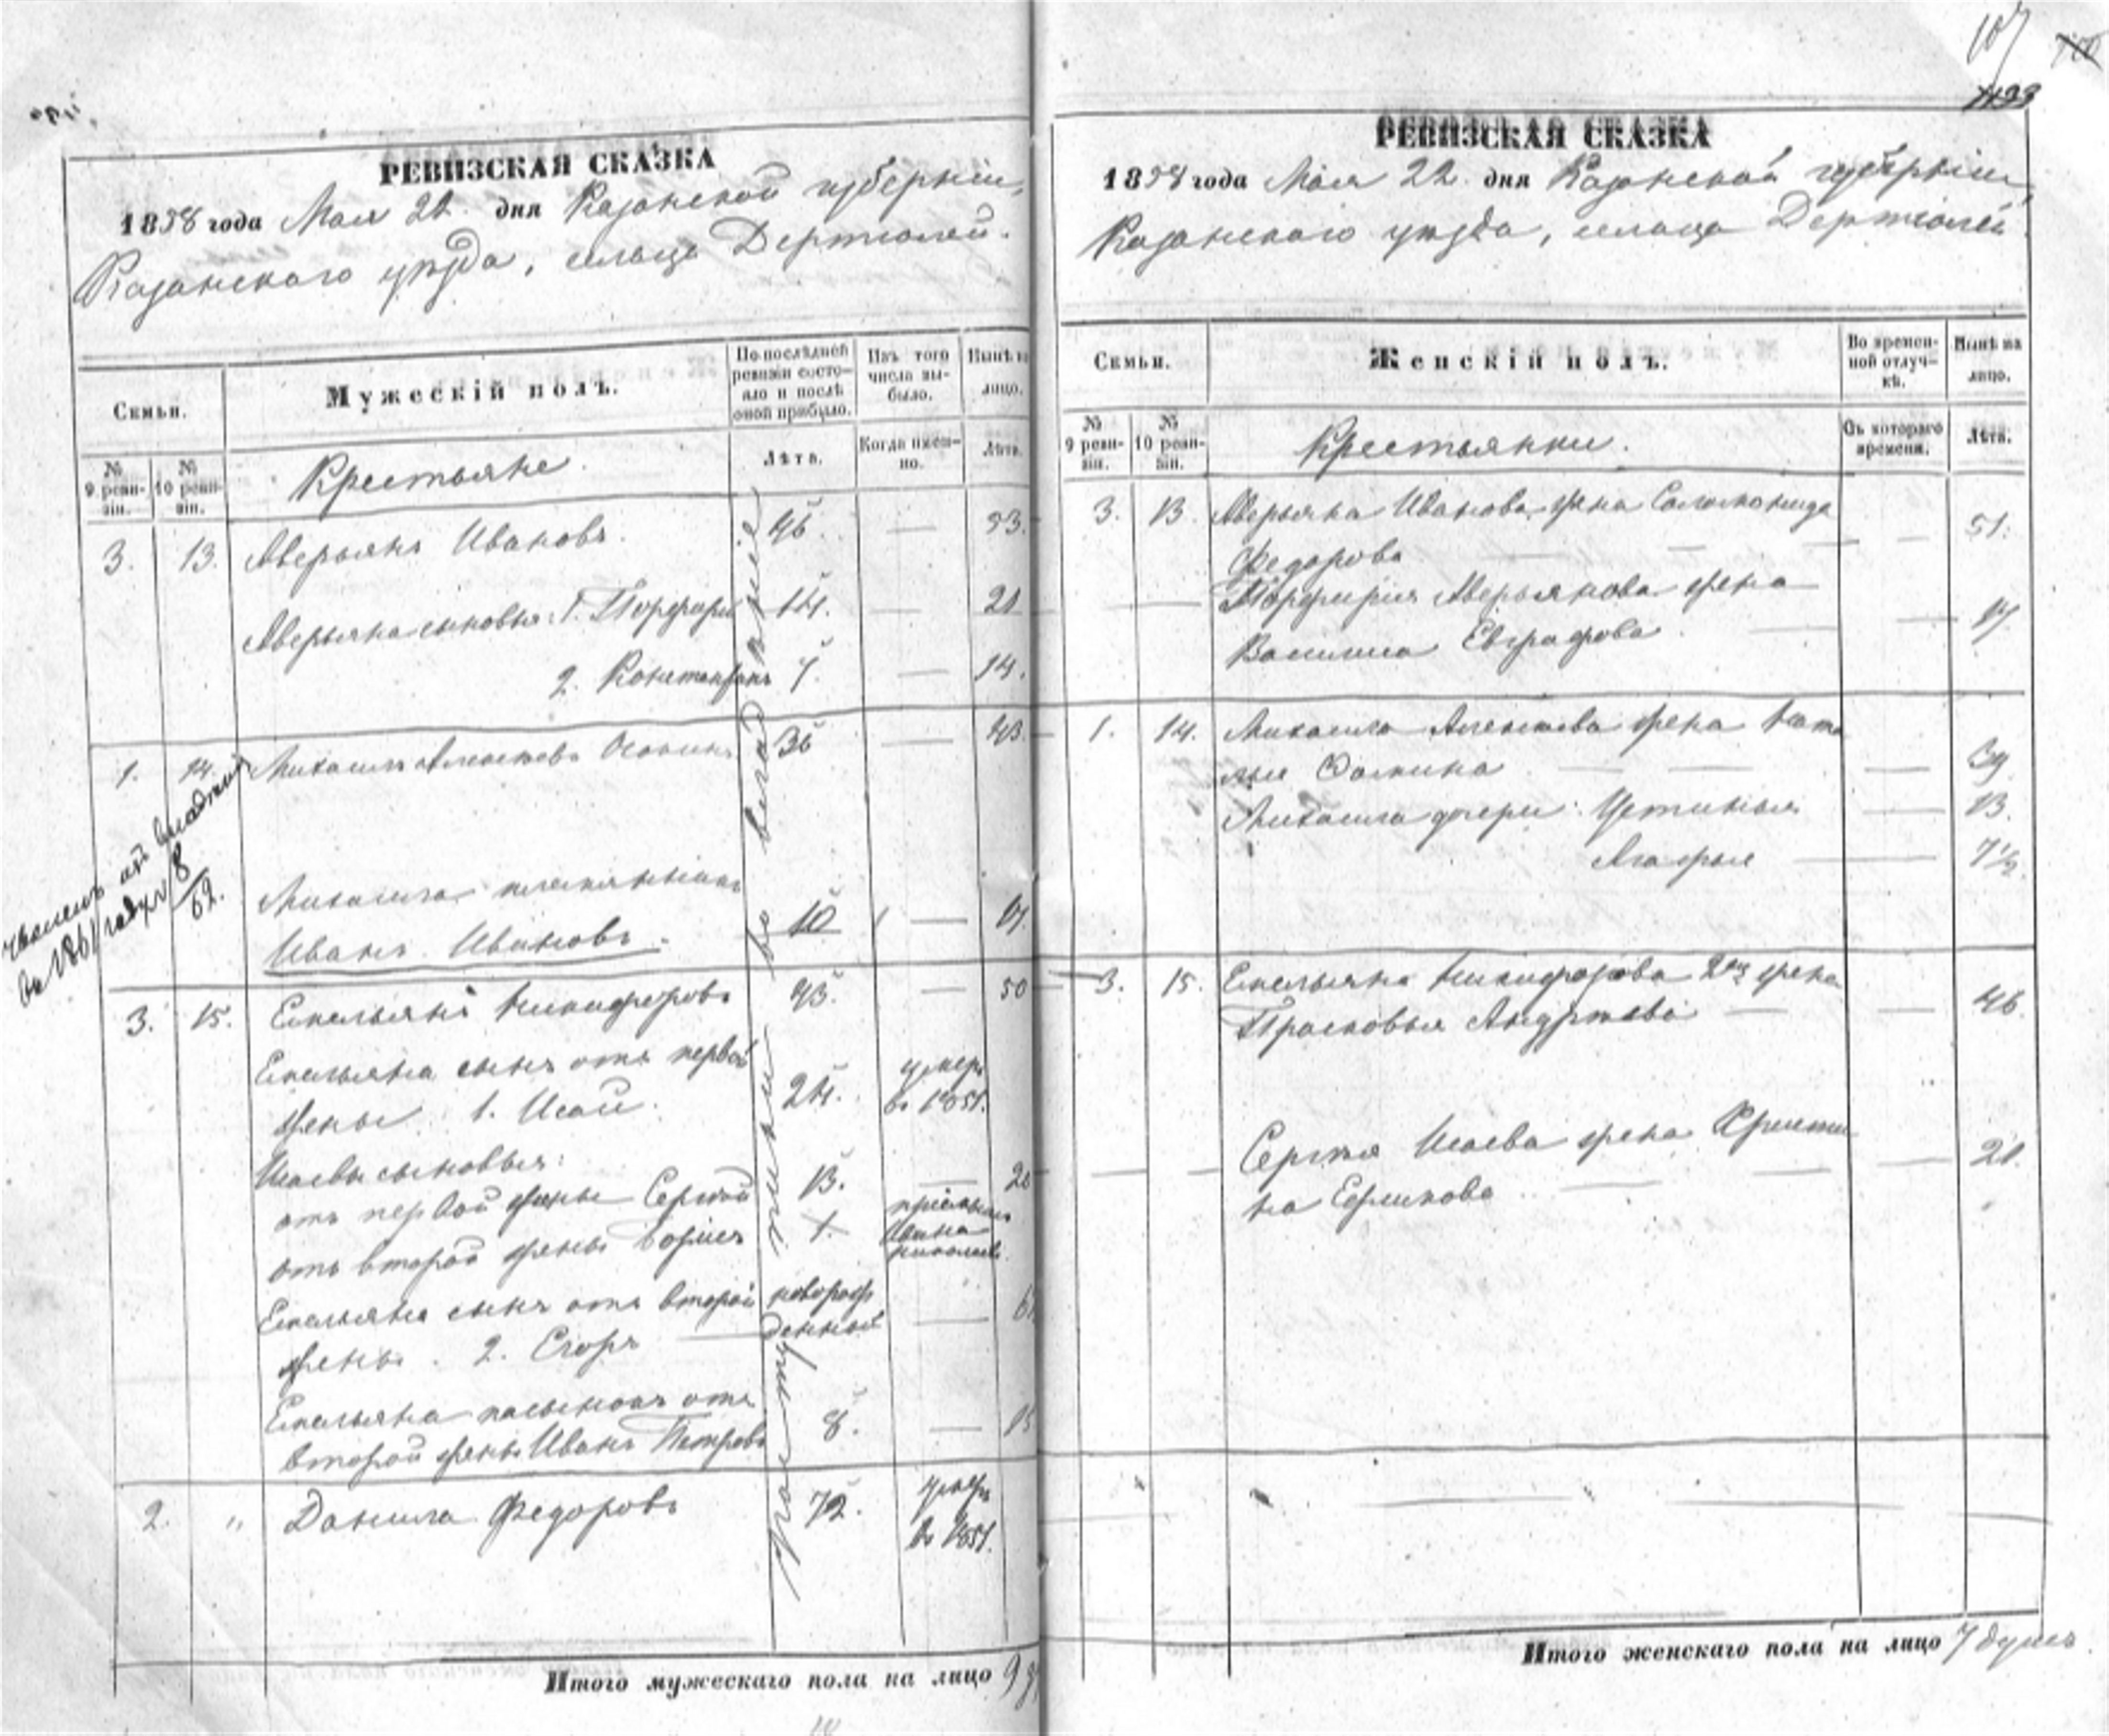 РЕВИЗСКАЯ СКАЗКА
1858 года Мая 22 дня Казанской губернiи,
Казанскаго уѣзда, сельца Дертюлей.
Семьи.
Мужескiй полъ.
По послѣдней ревизiи состояло и послѣ оной прибыло.
Изъ того числа выбыло.
Нынѣ на лицо.
№ 9 ревизiи.
№ 10 ревизiи.
Крестьяне.
Лѣта.
Когда именно.
Лѣта.
3. 13. Аверьянъ Ивановъ. 46. — 53.
Аверьяна сыновья: 1. Порфирiй 14. — 21
2. Константинъ 7. — 14.
1. 14. Михаила Алексѣевъ 36 — 43.
Михаила племянникъ
Иванъ Ивановъ. 10 — 17.
въ 1861 году 8/62.
3. 15. Емельянъ Никифоровъ 43. — 50
Емельяна сынъ отъ первой
жены 1. Исай. 24. умеръ въ 1851.
Исаевы сыновья:
отъ первой жены Сергѣй 13. — 20
отъ второй жены Борисъ 1.
Емельяна сынъ отъ второй новорож
жены. 2. Егоръ — денный —
Емельяна пасынокъ отъ
второй жены Иванъ Петровъ 8. — 15
2. " Данила Федоровъ 72. умеръ въ 1851.
Итого мужескаго пола на лицо 9
107
РЕВИЗСКАЯ СКАЗКА
1858 года Мая 22 дня Казанской губернiи,
Казанскаго уѣзда, сельца Дертюлей
Семьи.
Женскiй полъ.
Во временной отлучкѣ.
Нынѣ на лицо.
№ 9 ревизiи.
№ 10 ревизiи.
Крестьянки.
Съ котораго времени.
Лѣта.
3. 13. Аверьяна Иванова жена Саломонида
Федорова — — — 51.
Порфирiя Аверьянова жена
Василиса Евграфова — — 19.
1. 14. Михаила Алексѣева жена Ната
лья Фомина — — — 39
Михаила дочери: Устинья — 13.
Агафья — 7½
3. 15. Емельяна Никифорова 2я жена
Прасковья Андрѣева — — 46.
Сергѣя Исаева жена Христи
на Ефимова — — — 21.
Итого женскаго пола на лицо 7 душъ